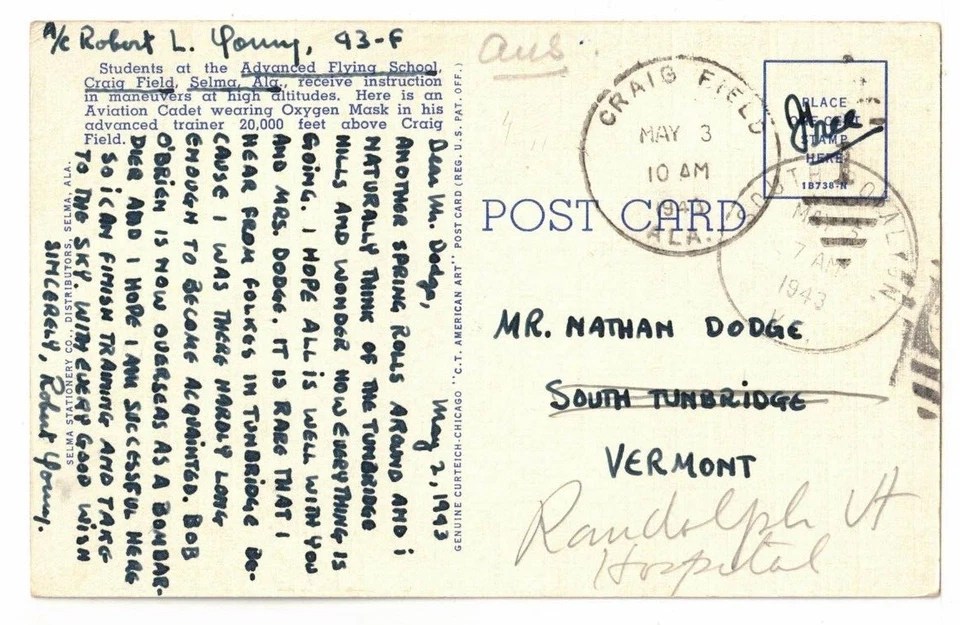 A/c Robert L. Young, 43-F
Students at the Advanced Flying School,
Craig Field, Selma, Ala., receive instruction
in maneuvers at high altitudes. Here is an
Aviation Cadet wearing Oxygen Mask in his
advanced trainer 20,000 feet above Craig
Field.
May 2, 1943
Dear Mr. Dodge,
ANOTHER SPRING ROLLS AROUND AND i
NATURALLY THINK OF THE TUNBRIDGE
HILLS AND WONDER HOW EVERYTHING IS
GOING. I HOPE ALL iS WELL WITH YOU
AND MRS. DODGE. IT IS RARE THAT I
HEAR FROM FOLKES IN TUNBRIDGE BE-
CAUSE I WAS THERE HARDLY LONG
ENOUGH TO BECOME ACQUAINTED. BOB
O'BRIEN IS NOW OVERSEAS AS A BOMBAR-
DIER AND I HOPE I AM SUCCESSFUL HERE
SO iCAN FINISH TRAINING AND TAKE
TO THE SKY. WITH EVERY GOOD WISH
SINCERELY, Robert Young.
SELMA STATIONERY CO., DISTRIBUTORS, SELMA, ALA.
GENUINE CURTEICH-CHICAGO "C.T. AMERICAN ART" POST CARD (REG. U.S. PAT. OFF.)
ans
CRAIG FIELD
MAY 3
10 AM
1943
ALA.
PLACE
ONE CENT
STAMP
HERE
1B738-N
Free
POST CARD
SOUTH ROYALTON
MAY 5
7 AM
1943
MR. NATHAN DODGE
SOUTH TUNBRIDGE
VERMONT
Randolph Vt
Hospital